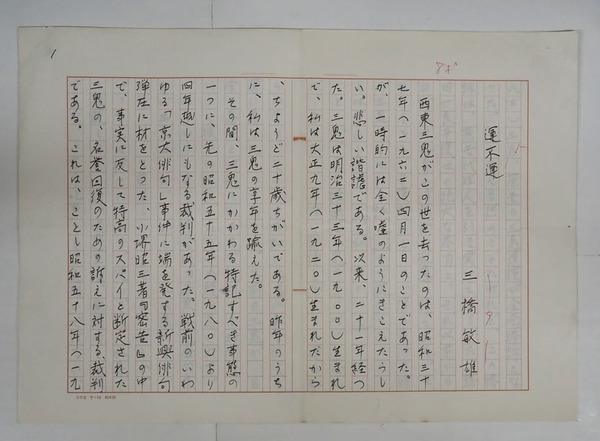 運不運
三橋敏雄
西東三鬼がこの世を去ったのは、昭和三十
七年(一九六二)四月一日のことであった。
が、一時的には全く嘘のようにきこえたらし
い。悲しい諧謔である。以来、二十一年経っ
た。三鬼は明治三十三年(一九〇〇)生まれ
で、私は大正九年(一九二〇)生まれだから
、ちょうど二十歳ちがいである。昨年のうち
に、私は三鬼の享年を踰えた。
その間、三鬼にかかわる特記すべき事態の
一つに、先の昭和五十五年(一九八〇)より
四年越しにもなる裁判があった。戦前のいわ
ゆる「京大俳句」事件に端を発する新興俳句
弾圧に材をとった、小堺昭三著『密告』の中
で、事実に反して特高のスパイと断定された
三鬼の、名誉回復のための訴えに対する裁判
である。これは、ことし昭和五十八年(一九
1